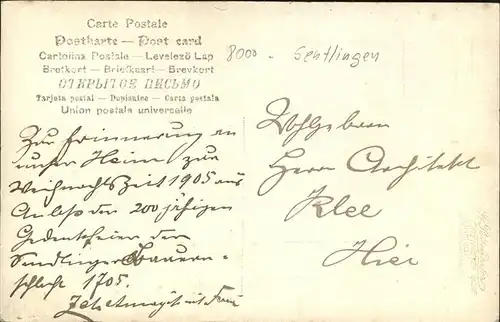 Carte Postale
Postkarte — Post card
Cartolina Postale — Levelező Lap
Brefkort — Briefkaart — Brevkort
ОТКРЫТОЕ ПИСЬМО
Tarjeta postal — Dopisnice — Carta postala
Union postale universelle
8000 - Sentlingen
Zur Erinnerung an
unser Heim zur
Weihnachtszeit 1905 aus
Anlaß der 200 jährigen
Gedenkfeier der
Sendlinger Bauern-
schlacht 1705.
mit Frau
Wohlgeboren
Herrn Architekt
Klee
Hier